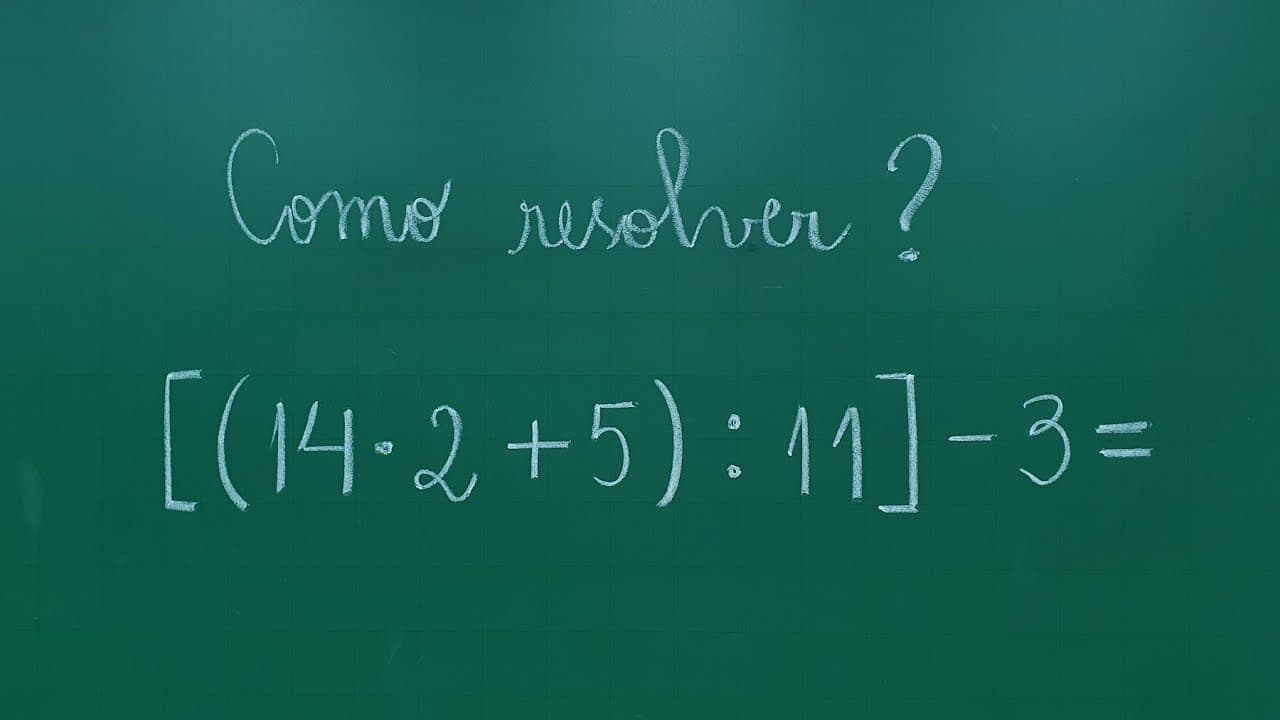 Como resolver?
[(14·2+5):11]-3=